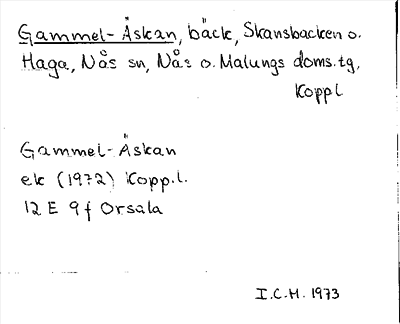 Gammel-Åskan, bäck, Skansbacken o.
Haga, Nås sn, Nås o. Malungs doms.tg,
Koppl
Gammel-Åskan
ek (1972) Kopp.l.
12 E 9f Orsala
I.C.H. 1973